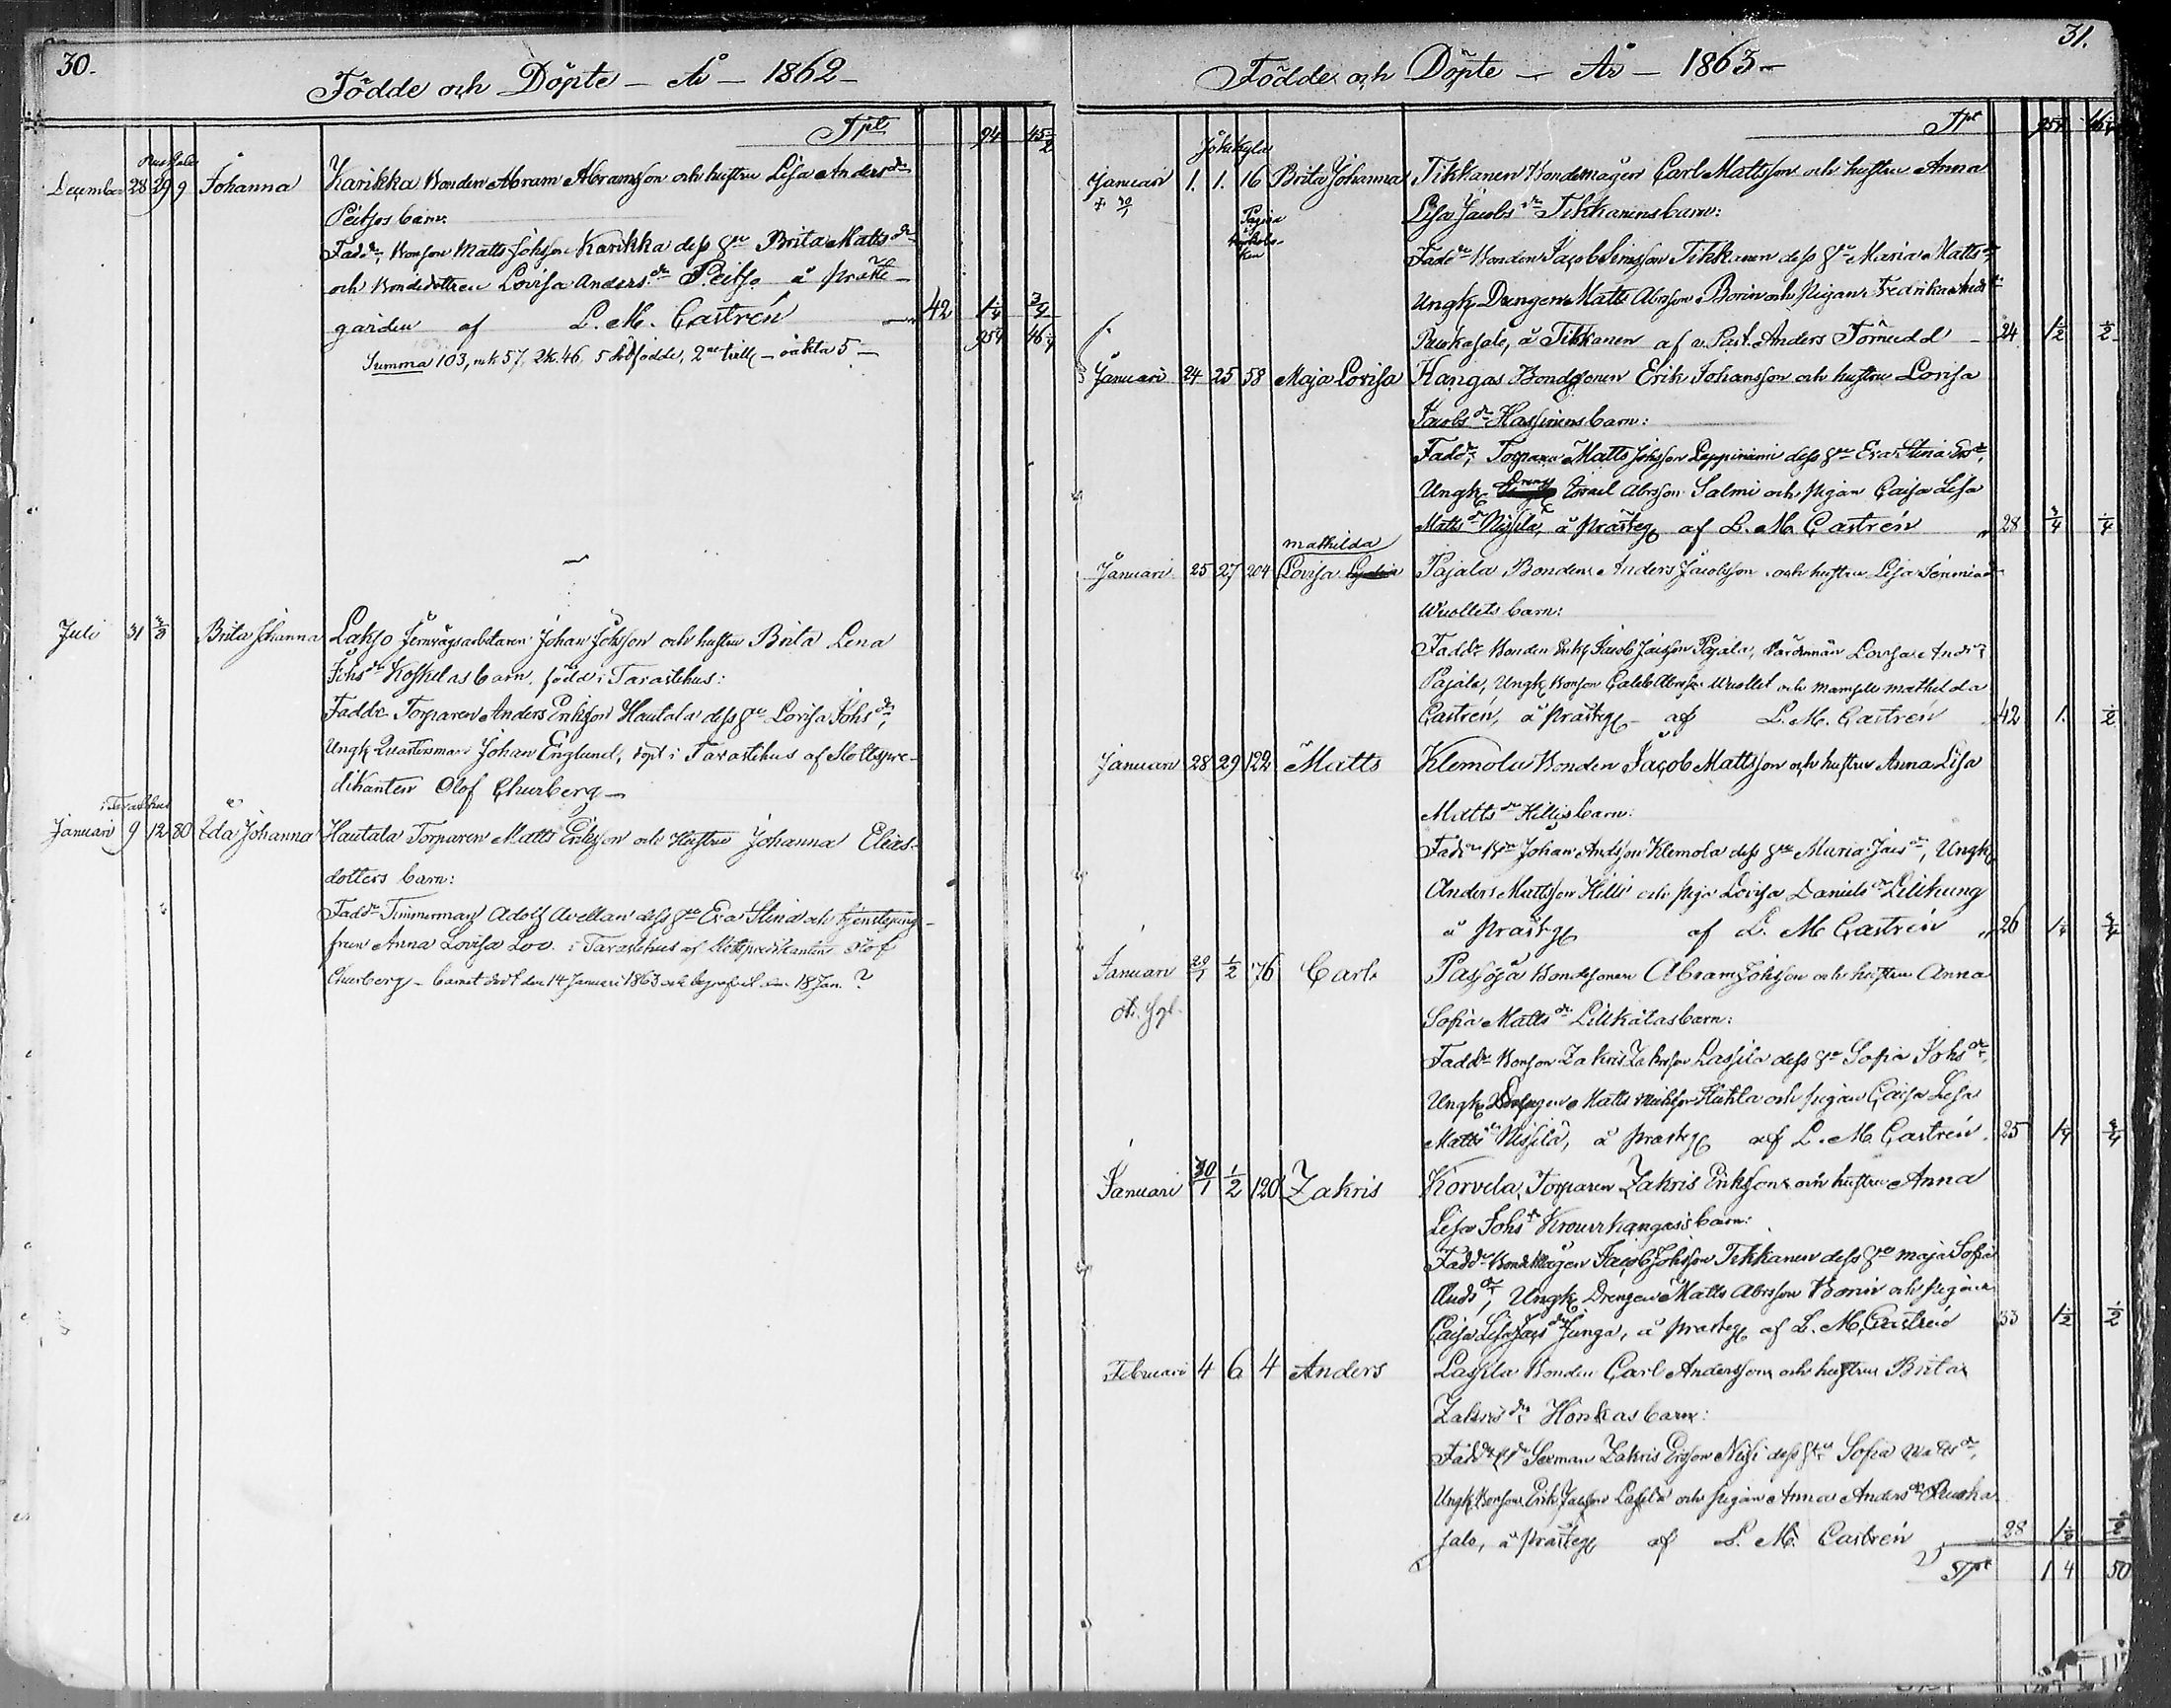 30.
Födde och Döpte – År – 1862 –
Tpt 94 45 1/2
Ruskales
December 28 29 9 Johanna Karikka Bonden Abram Abramsson och hustru Lisa Andersdr
Peitsos barn:
Faddr, Bonson Matts Johsson Karikka dess Hu Brita Mattsdr
och Bondedottren Lovisa Andersdr Peitso å Präst-
gården af L. M. Castrén 42 1 1/4 3/4
95 1/4 46 1/4
Summa 103, mk 57, 2k. 46, 5 dödfödde, 2ne tvill – oäkta 5 –
Juli 31 3/8 Brita Johanna Lakso Jernvägsarbetaren Johan Johsson och hustru Brita Lena
Johsdr Koskelas barn, född i Tavastehus:
Faddr Torparen Anders Eriksson Hautala dess Hu Lovisa Johsdr,
Ungk Quartersman Johan Englund, döpt i Tavastehus af Slottspre-
dikanten Olof Churberg –
i Tavastehus
Januari 9 12 80 Ida Johanna Hautala Torparen Matts Eriksson och Hustru Johanna Elias-
dotters barn:
Faddr Timmerman Adolf Avellan dess Hu Eva Stina och tjenstejung-
frun Anna Lovisa Loo. i Tavastehus af Slottspredikanten Olof
Churberg – barnet dödt den 14 Januari 1863 och begrafvet den 18 Jan. ?
31.
Födde och Döpte – År – 1863 –
Tpt 95 1/4 46 1/4
Jökikylä
Januari 1. 1. 16 Brita Johanna Tikkanen Bondemågen Carl Mattsson och hustru Anna
+ 30/1
Lisa Jacobsdr Tikkanens barn:
Pagina
Faddr Bonden Jacob Simsson Tikkanen dess Hu Maria Mattsdr,
Ungk Drengen Matts Abrsson Borin och Pigan Fredrika Andrdr
Ruskasalo, å Tikkanen af v. Past. Anders Törnudd 24 1 1/2 1/2
Januari 24 25 58 Maja Lovisa Hangas Bondesonen Erik Johansson och hustru Lovisa
Jacobsdr Hassinens barn:
Faddr, Torparen Matts Johsson Leppiniemi dess Hu Eva Stina Ersdr,
Ungk Israel Abrsson Salmi och pigan Caisa Lisa
Mattsdr Nissilä, å prästeg af L. M. Castrén 28 3/4 1/4
mathilda
Januari 25 27 204 Lovisa Pajala Bonden Anders Jacobsson och hustru Lisa Jeremiadr
Wuollets barn:
Faddr Bonden Enkl Jacob Jacsson Pajala, Värdinnan Lovisa Andrdr
Pajala, Ungk Bonson Caleb Abrsson Wuollet och mamsell mathilda
Castrén, å prästeg af L. M. Castrén 42 1. 1/2
Januari 28 29 122 Matts Klemola Bonden Jacob Mattsson och hustru Anna Lisa
Mattsdr Hillis barn:
Faddr Bdn Johan Andsson Klemola dess Hu Maria Jacsdr, Ungk
Anders Mattsson Hilli och piga Lovisa Danielsdr Lillkung
å prästg af L. M. Castrén 26 1 1/4 3/4
Januari 29/1 1/2 76 Carl Pasoja Bondesonen Abram Johsson och hustru Anna
Sofia Mattsdr Lillkälas barn:
Faddr Bonson Zakris Zakrsson Lassila dess Hu Sofia Johsdr,
Ungk Drengen Matts Huhta och pigan Caisa Lisa
Mattsdr Nissilä, å prästeg af L. M. Castrén. 25 1 1/4 3/4
Januari 30/1 1/2 120 Zakris Korvela Torparen Zakris Eriksson och hustru Anna
Lisa Johsdr Krouvhangasis barn:
Faddr Bondemågen Jacob Johsson Tikkanen dess Hu maja Sofia
Andsdr, Ungk Drengen Matts Abrsson Borin och pigan
Caisa Lisa Jacsdr Junga, å prästeg af L. M. Castrén 33 1 1/2 1/2
Februari 4 6 4 Anders Lassila Bonden Carl Andersson och hustru Brita
Zakrisdr Honkas barn:
Faddr Bdn Sexman Zakris Ersson Nisi dess Hu Sofia Mattsdr,
Ungk Bonson Erik Jacsson Lassila och pigan Anna Andersdr Ruska
salo, å prästeg af L. M. Castrén 28 1 1/2 1/2
Tpt 1 4 50